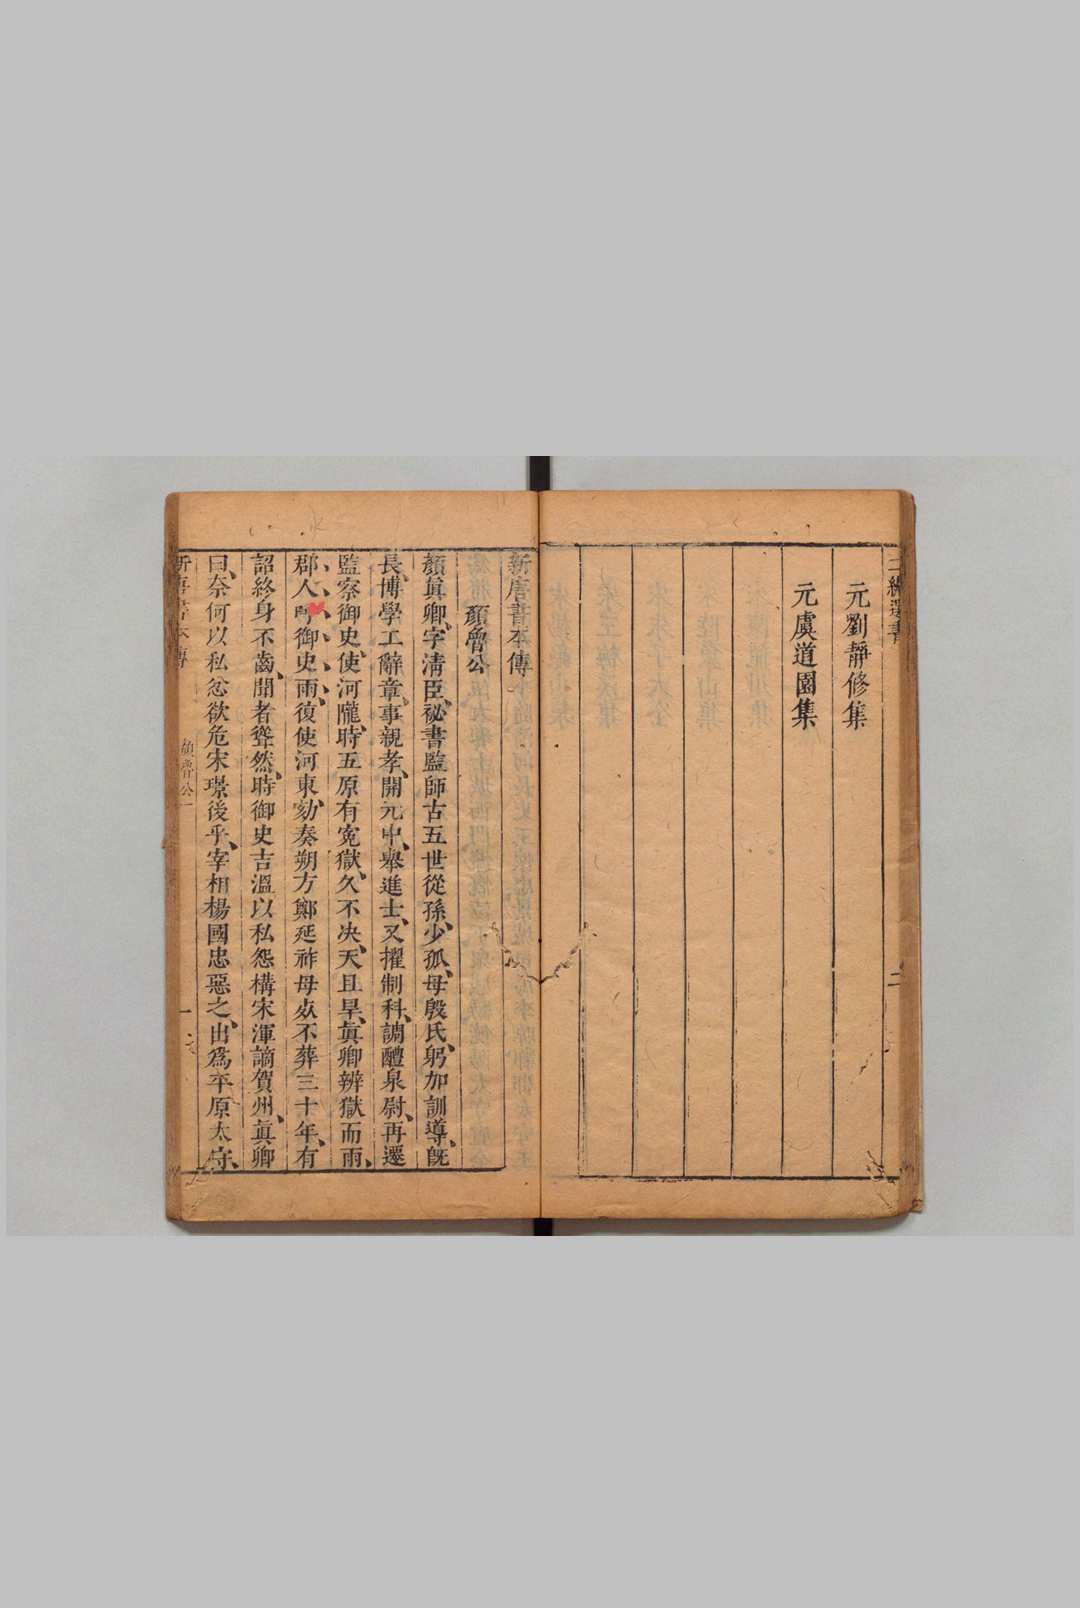 元劉靜修集
元虞道園集
二
新唐書本傳
顏魯公
顏真卿字清臣祕書監師古五世從孫少孤母殷氏躬加訓導既
長博學工辭章事親孝開元中舉進士又擢制科調醴泉尉再遷
監察御史使河隴時五原有寃獄久不決天且旱真卿辨獄而雨
郡人呼御史雨復使河東劾奏朔方鄭延祚母死不葬三十年有
詔終身不齒聞者聳然時御史吉溫以私怨構宋渾謫賀州真卿
曰奈何以私忿欲危宋璟後乎宰相楊國忠惡之出為平原太守
新唐書本傳
顏魯公一
一